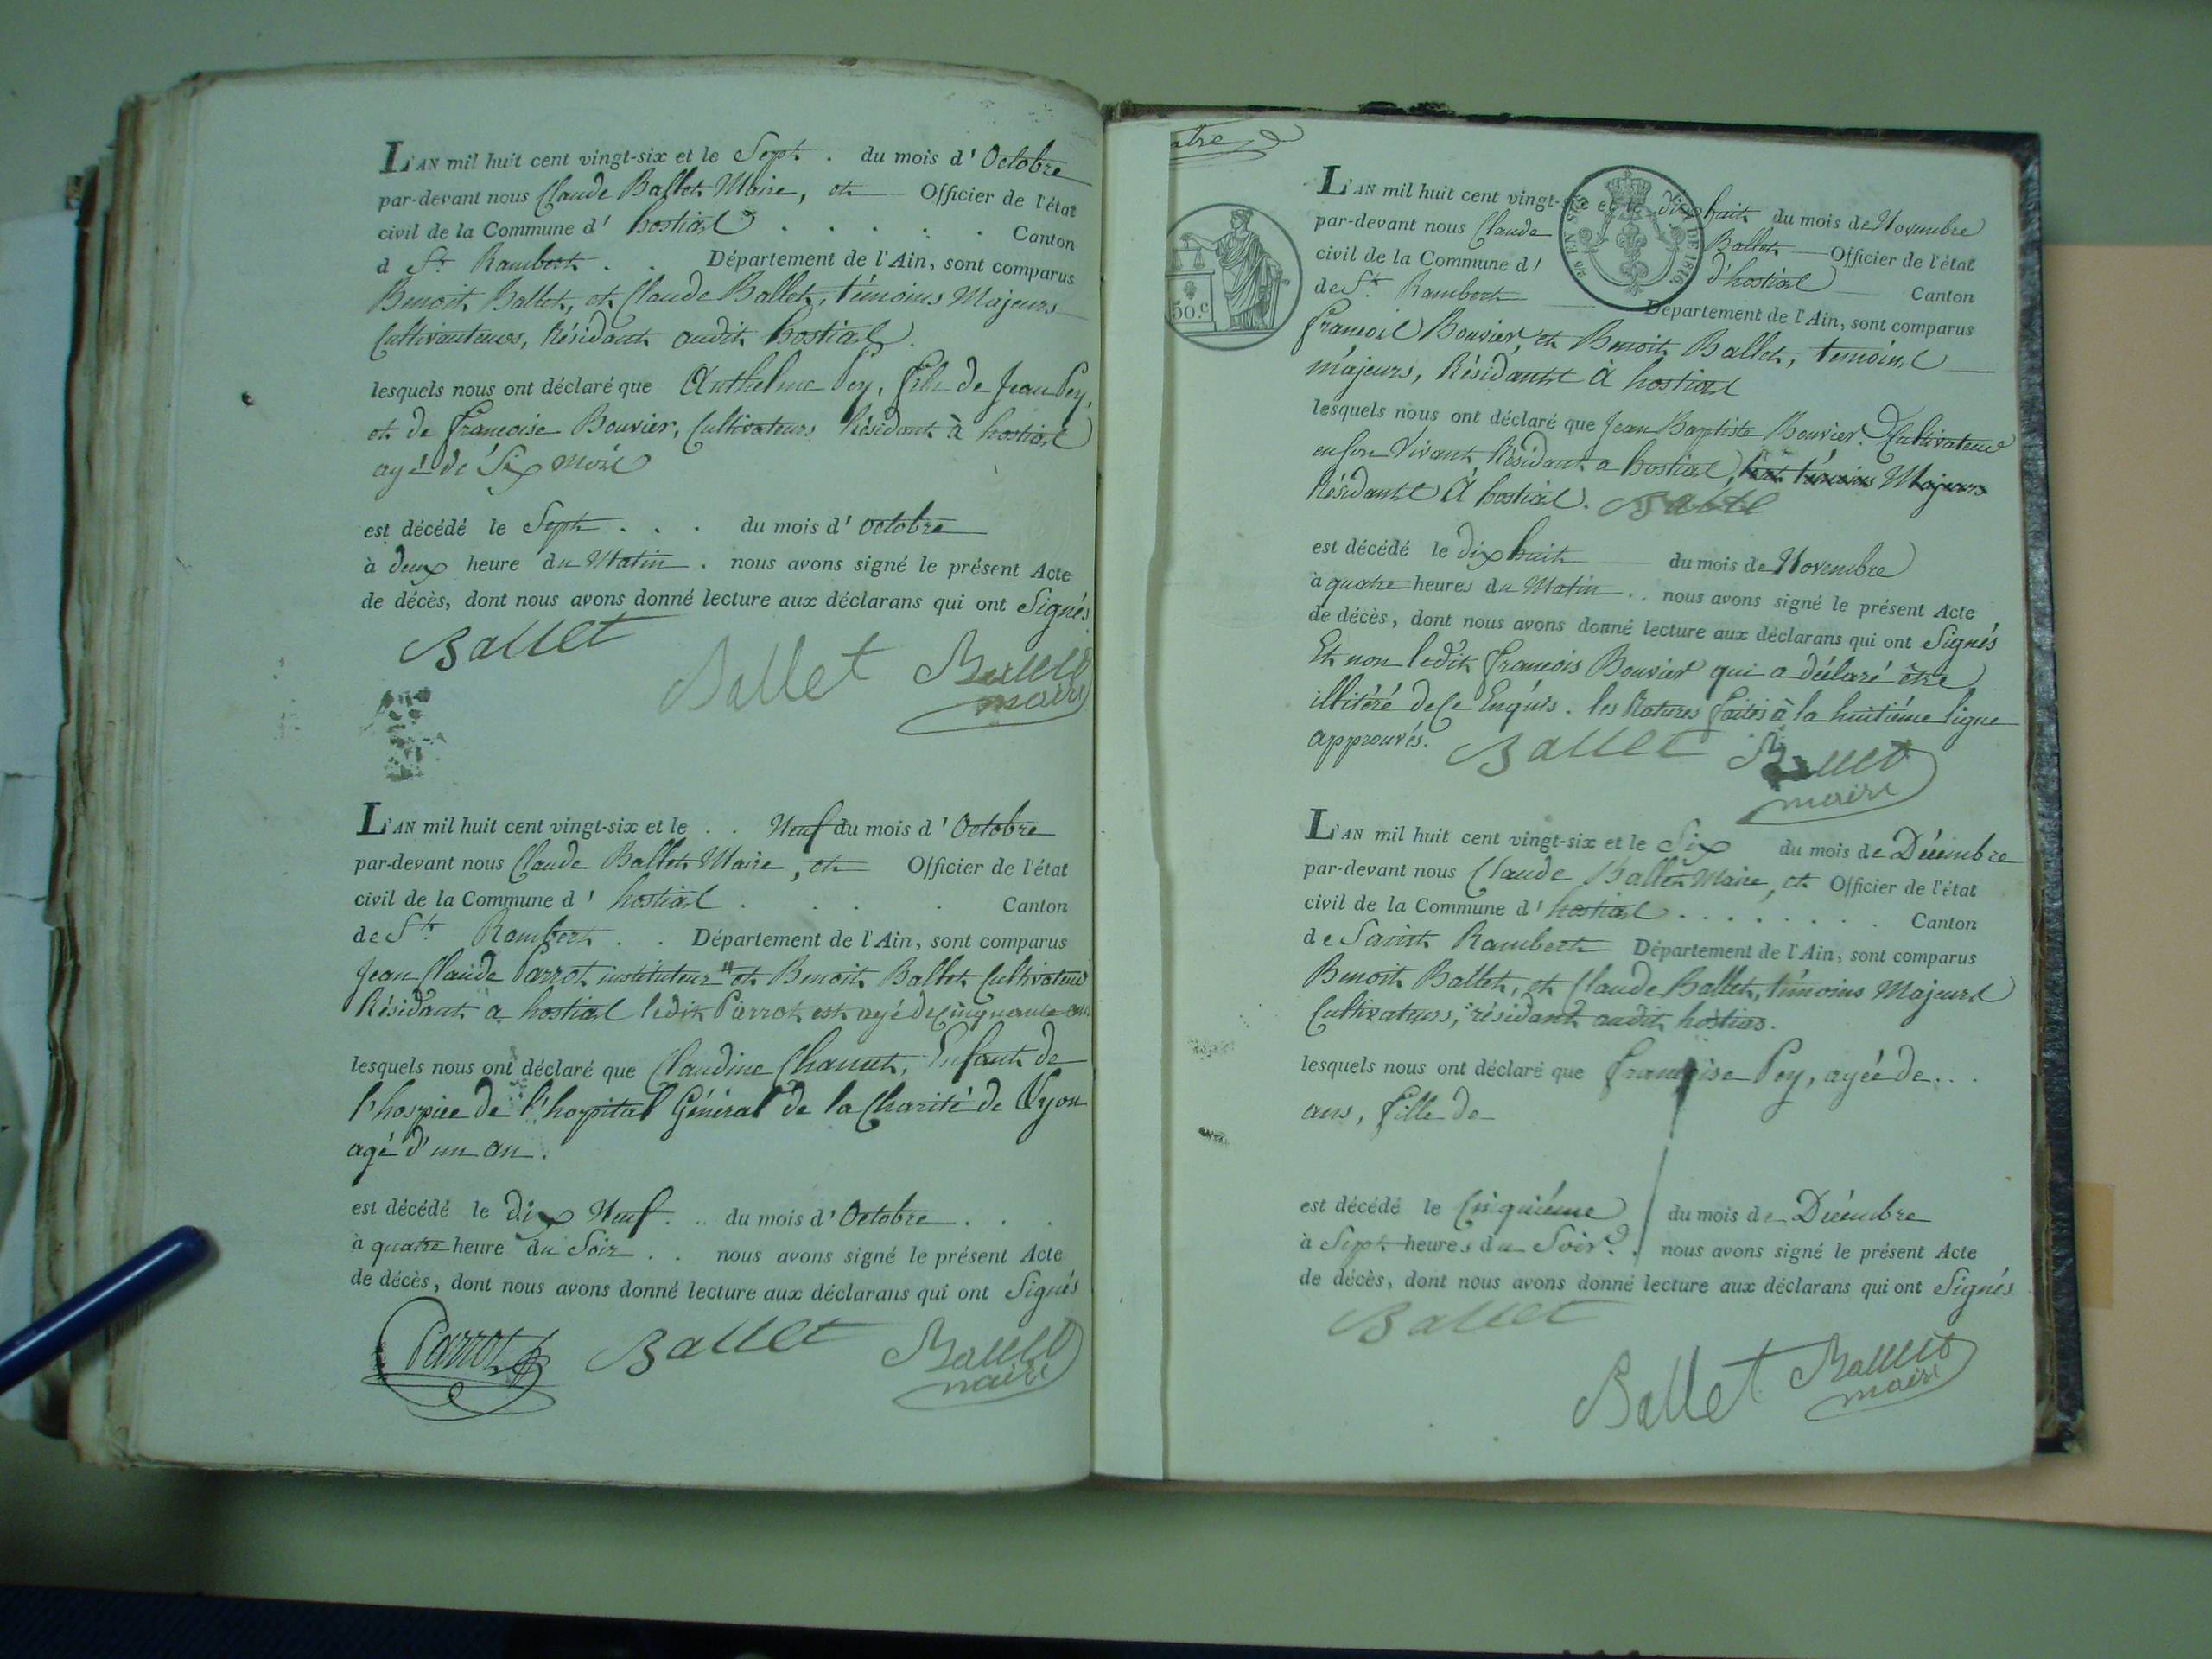 L'AN mil huit cent vingt-six et le Sept . du mois d' Octobre
par-devant nous Claude Ballet Maire, et Officier de l'état
civil de la Commune d' hostias . . . . . Canton
d St Rambert . . Département de l'Ain, sont comparus
Benoit Ballet, et Claude Ballet, témoins Majeurs
Cultivauteurs, Résidant audit hostias.
lesquels nous ont déclaré que Anthelme Pey, fils de Jean Pey,
et de francoise Bouvier, Cultivateurs Résidant à hostias
agé de Six mois
est décédé le Sept . . . du mois d' octobre
à deux heure du Matin . nous avons signé le présent Acte
de décès, dont nous avons donné lecture aux déclarans qui ont Signés
Ballet
Ballet Ballet
maire
L'AN mil huit cent vingt-six et le . . Neuf du mois d' Octobre
par-devant nous Claude Ballet Maire, et Officier de l'état
civil de la Commune d' hostias . . . . Canton
de St Rambert . . Département de l'Ain, sont comparus
Jean Claude Parrot instituteur et Benoit Ballet Cultivateur
Résidant a hostias ledit Parrot est agé de cinquante ans
lesquels nous ont déclaré que Claudine Chanut, Enfant de
l'hospice de l'hopital Général de la Charité de Lyon
agé d'un an .
est décédé le dix Neuf . . du mois d' Octobre . . .
à quatre heure du Soir . . nous avons signé le présent Acte
de décès, dont nous avons donné lecture aux déclarans qui ont Signés
Parrot Ballet Ballet
maire
L'AN mil huit cent vingt-six et le dix huit du mois de Novembre
par-devant nous Claude Ballet Officier de l'état
civil de la Commune d' d'hostias Canton
de St Rambert Département de l'Ain, sont comparus
50.c
DE 1816
francois Bouvier, et Benoit Ballet, temoins
majeurs, Résidants à hostias
lesquels nous ont déclaré que Jean Baptiste Bouvier Cultivateur
en son Vivant Résidant a hostias, témoins Majeurs
Résidants à hostias.
est décédé le dix huit du mois de Novembre
à quatre heures du Matin . . nous avons signé le présent Acte
de décès, dont nous avons donné lecture aux déclarans qui ont Signés
Et non ledit francois Bouvier qui a déclaré être
illitéré de ce Enquis . les Ratures faites à la huitiéme ligne
approuvés. Ballet Ballet
maire
L'AN mil huit cent vingt-six et le Six du mois de Décembre
par-devant nous Claude Ballet Maire, et Officier de l'état
civil de la Commune d' hostias . . . . . . . Canton
de Saint Rambert Département de l'Ain, sont comparus
Benoit Ballet, et Claude Ballet, témoins Majeurs
Cultivateurs, résidant audit hostias.
lesquels nous ont déclaré que francoise Pey, agée de . . .
ans, fille de
est décédé le Cinquiéme du mois de Décembre
à Sept heures du Soir . nous avons signé le présent Acte
de décès, dont nous avons donné lecture aux déclarans qui ont Signés
Ballet
Ballet Ballet
maire